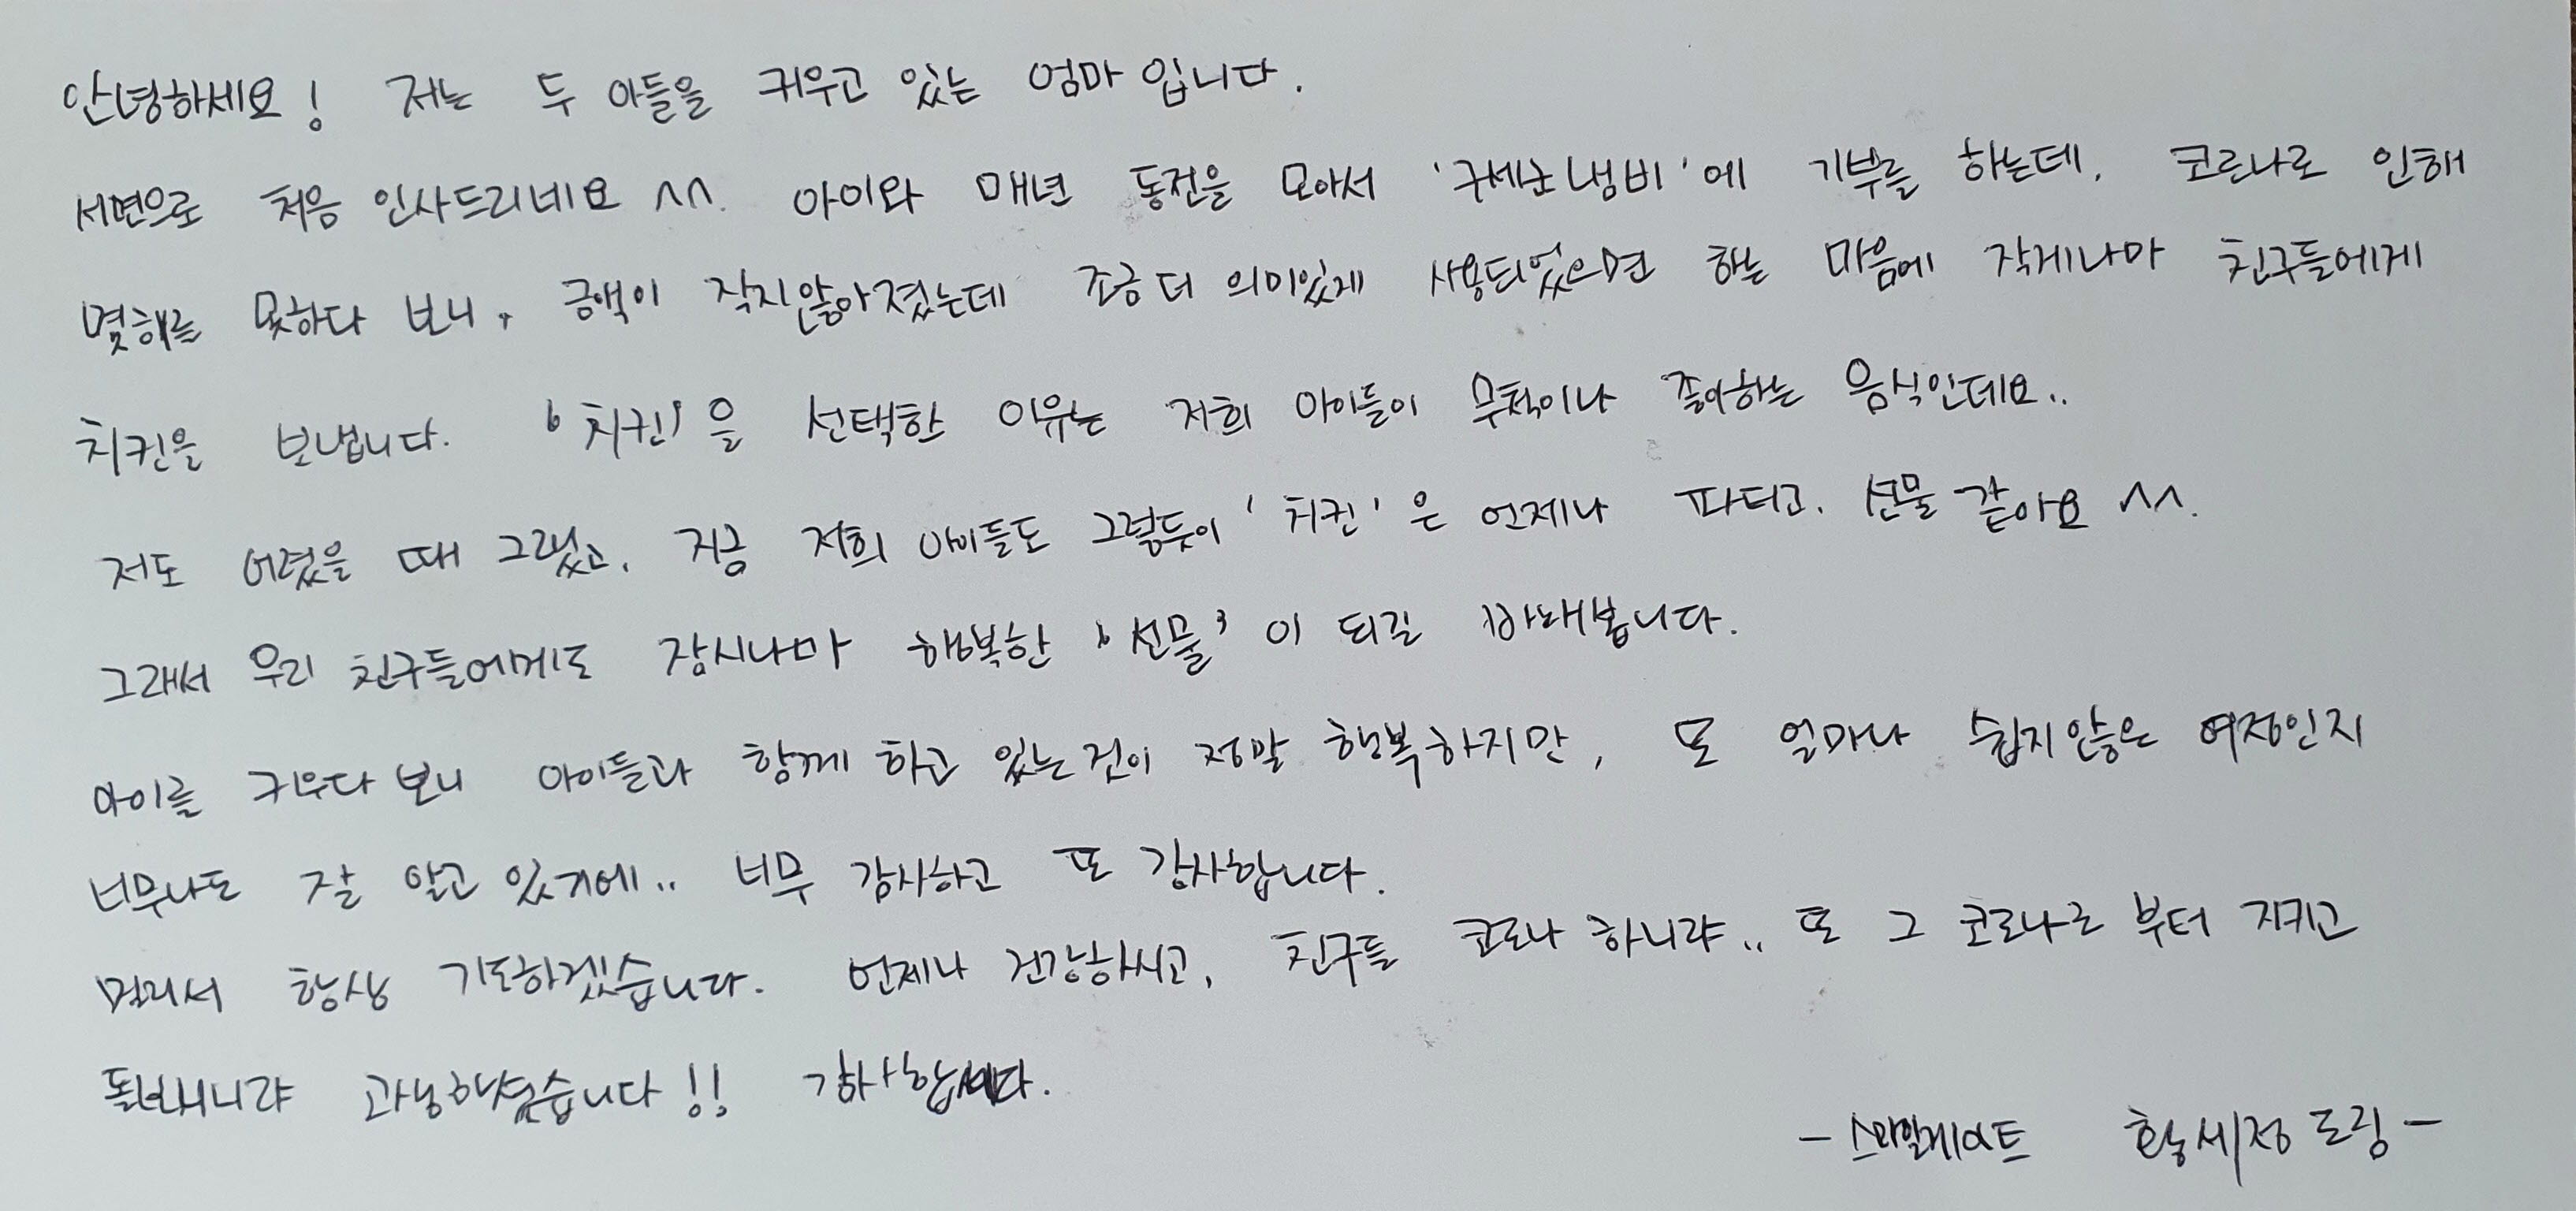 안녕하세요! 저는 두 아들을 키우고 있는 엄마입니다.
서면으로 처음 인사드리네요 ^^. 아이와 매년 동전을 모아서 '구세군냄비'에 기부를 하는데, 코로나로 인해
몇해를 못하다 보니, 금액이 작지않아졌는데 조금 더 의미있게 사용되었으면 하는 마음에 작게나마 친구들에게
치킨을 보냅니다. '치킨'을 선택한 이유는 저희 아이들이 무척이나 좋아하는 음식인데요..
저도 어렸을 때 그랬고, 지금 저희 아이들도 그렇듯이 '치킨'은 언제나 파티고, 선물 같아요 ^^.
그래서 우리 친구들에게도 잠시나마 행복한 '선물'이 되길 바래봅니다.
아이를 키우다 보니 아이들과 함께 하고 있는 것이 정말 행복하지만, 또 얼마나 쉽지 않은 여정인지
너무나도 잘 알고 있기에.. 너무 감사하고 또 감사합니다.
멀리서 항상 기도하겠습니다. 언제나 건강하시고, 친구들 코로나 하니랴.. 또 그 코로나로 부터 지키고
돌보시니랴 고생하셨습니다!! 감사합니다.
- 스마일게이트 황세정 드림 -